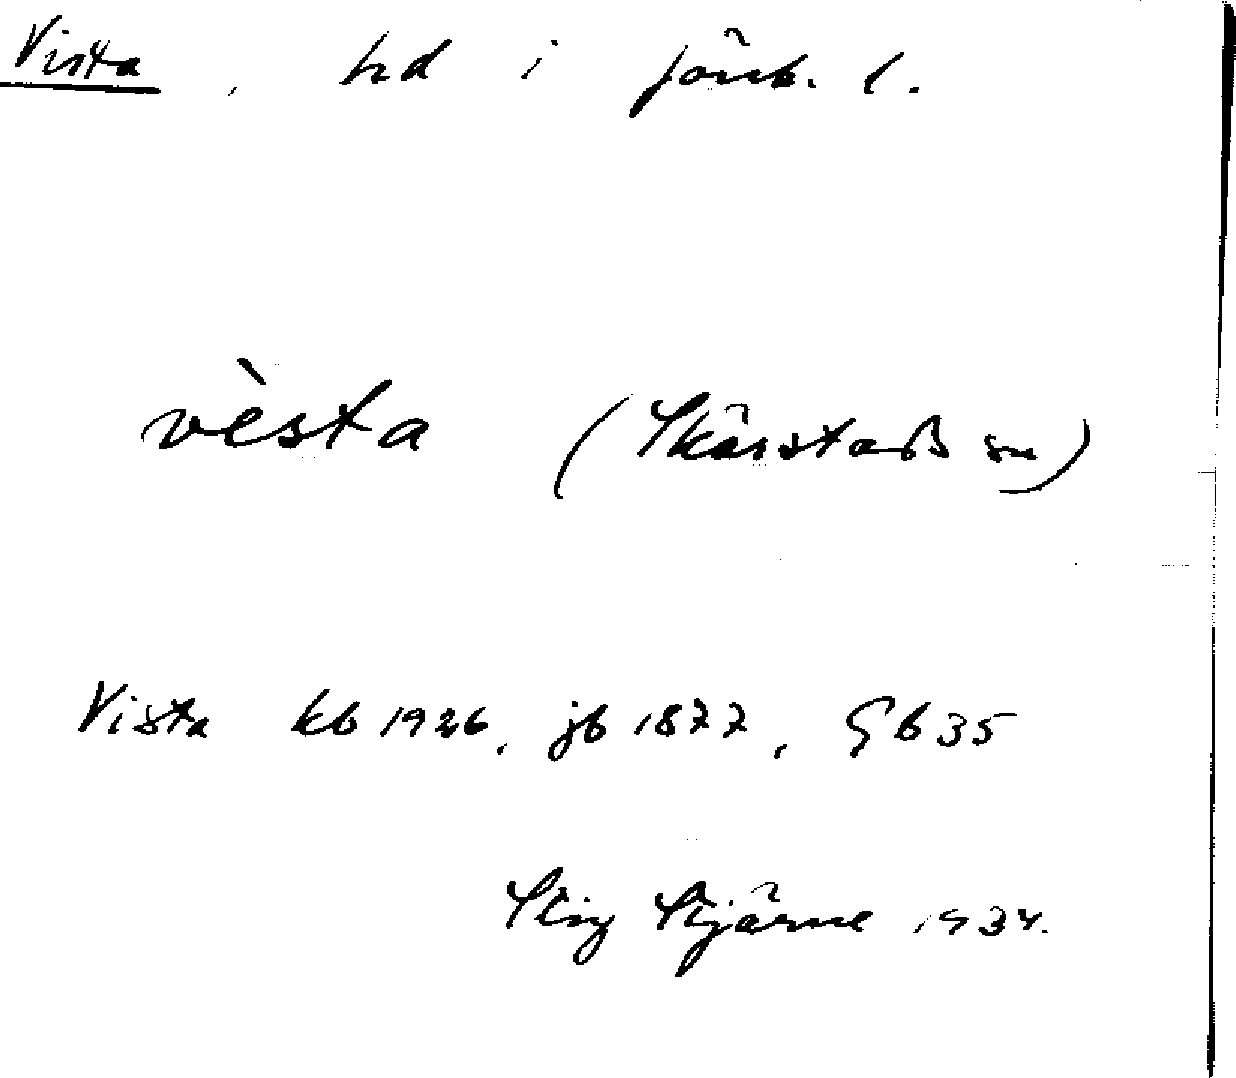 Vista, hd i Jönk. l.
vèsta (Skärstads sn)
Vista kb 1926, jb 1877, Gb 35
Stig Stjärne 1934.